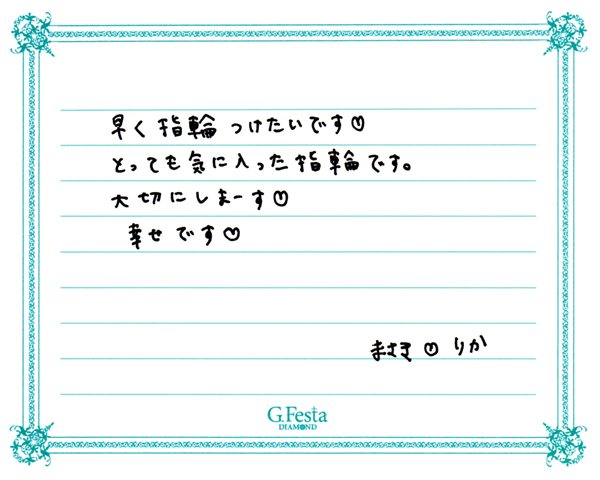 早く指輪つけたいです♡
とっても気に入った指輪です。
大切にしまーす♡
幸せです♡
まさき♡りか
G.Festa
DIAMOND